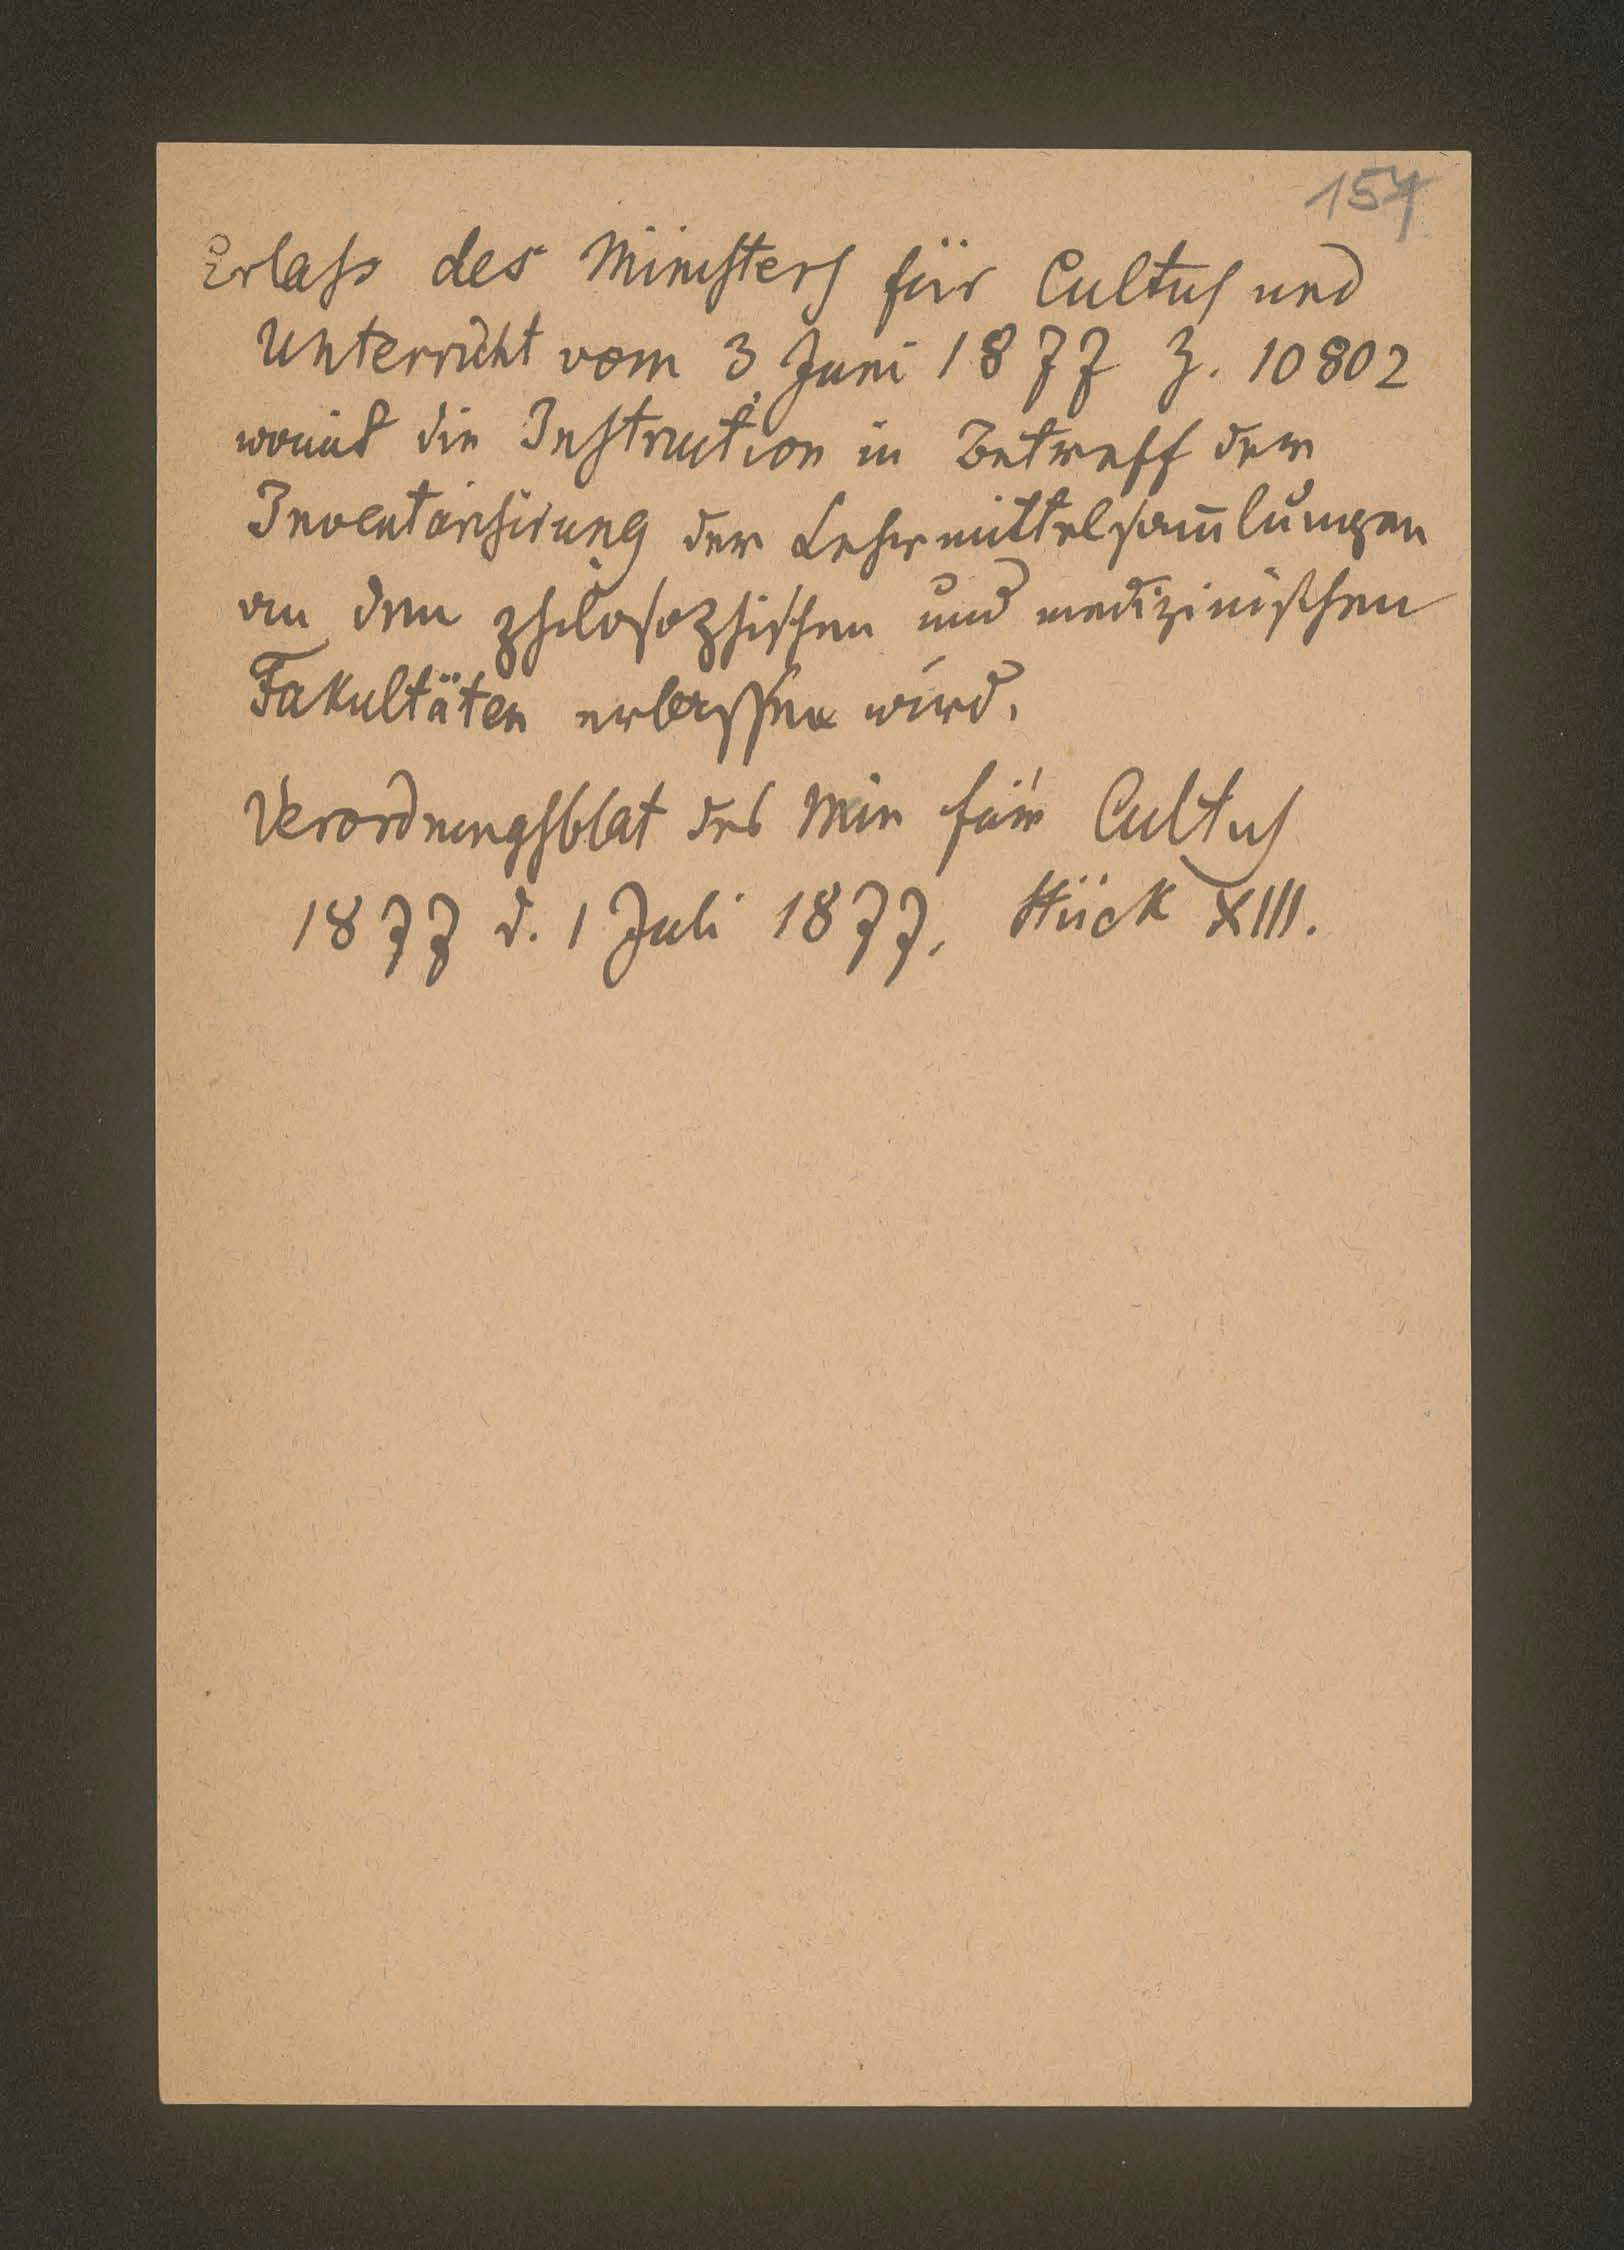 157
Erlass des Ministers für Cultus und
Unterricht vom 3. Juni 1877 Z. 10802
womit die Instruction in Betreff der
Inventarisirung der Lehrmittelsam̅lungen
an den philosophischen und medizinischen
Fakultäten erlassen wird.
Verordnungsblat des Min für Cultus
1877 d. 1 Juli 1877. Stück XIII.